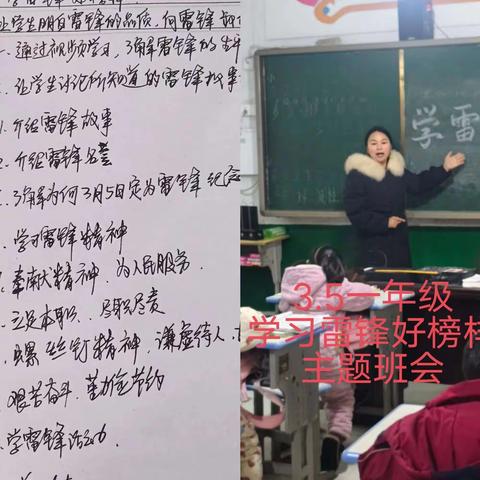 让学生明白雷锋的品质，向雷锋
一、通过视频学习，了解雷锋的生平
让学生讨论所知道的雷锋故事
介绍雷锋故事
介绍雷锋名言
了解为何3月5日定为雷锋纪念
学习雷锋精神
奉献精神，为人民服务。
立足本职、尽职尽责
螺丝钉精神，谦虚待人、
艰苦奋斗，勤俭节约
学雷锋活动
学雷
3.5一年级
学习雷锋好榜样
主题班会